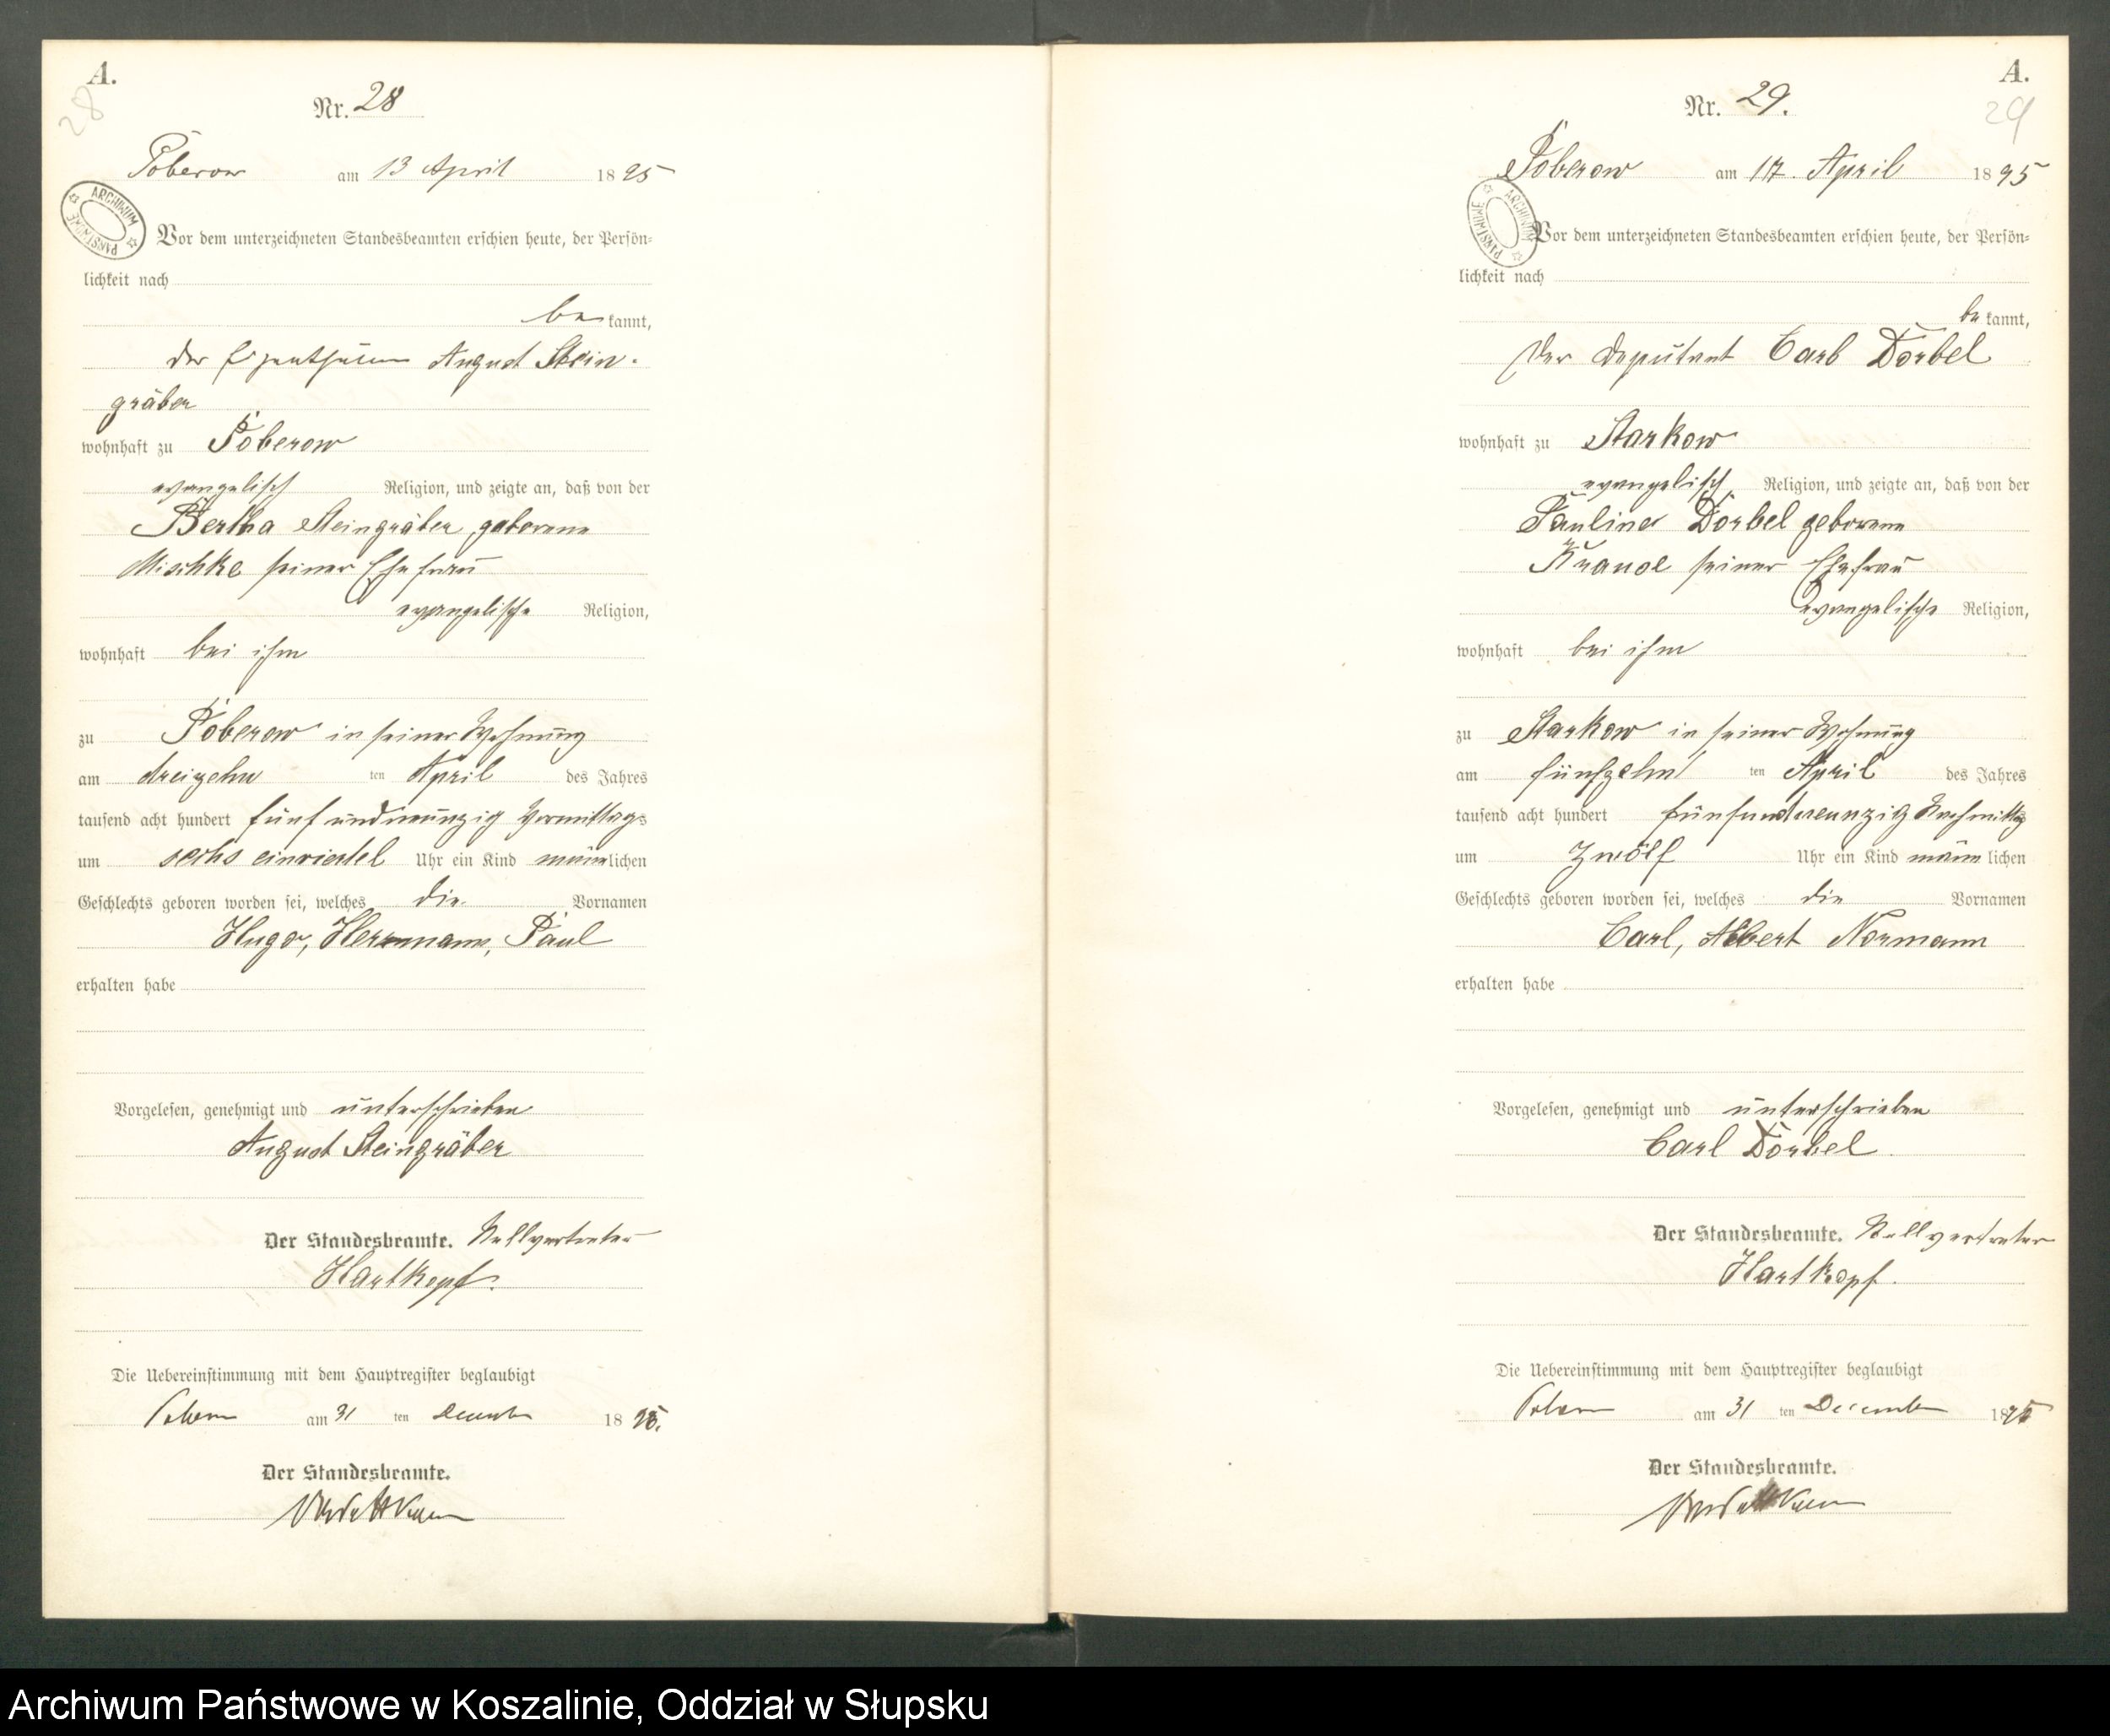 A.
28
Nr. 28
Poberow am 13 April 1895
ARCHIWUM PAŃSTWOWE
Vor dem unterzeichneten Standesbeamten erschien heute, der Persön-
lichkeit nach
be kannt,
der Eigenthümer August Stein-
gräber
wohnhaft zu Poberow
evangelisch Religion, und zeigte an, daß von der
Bertha Steingräber geborene
Mischke seiner Ehefrau
evangelische Religion,
wohnhaft bei ihm
zu Poberow in seiner Wohnung
am dreizehn ten April des Jahres
tausend acht hundert fünfundneunzig Vormittags
um sechs einviertel Uhr ein Kind männlichen
Geschlechts geboren worden sei, welches die Vornamen
Hugo, Herrmann, Paul
erhalten habe
Vorgelesen, genehmigt und unterschrieben
August Steingräber
Der Standesbeamte. Stellvertreter
Hartkopf.
Die Uebereinstimmung mit dem Hauptregister beglaubigt
am 31 ten December 1895.
Der Standesbeamte.
A.
29
Nr. 29.
Poberow am 17. April 1895
ARCHIWUM PAŃSTWOWE
Vor dem unterzeichneten Standesbeamten erschien heute, der Persön-
lichkeit nach
be kannt,
Der Deputant Carl Dörbel
wohnhaft zu Starkow
evangelisch Religion, und zeigte an, daß von der
Pauline Dörbel geborene
seiner Ehefrau
evangelische Religion,
wohnhaft bei ihm
zu Starkow in seiner Wohnung
am fünfzehn ten April des Jahres
tausend acht hundert fünfundneunzig Nachmittag
um zwölf Uhr ein Kind männlichen
Geschlechts geboren worden sei, welches die Vornamen
Carl, Albert Normann
erhalten habe
Vorgelesen, genehmigt und unterschrieben
Carl Dörbel
Der Standesbeamte. Stellvertreter
Hartkopf.
Die Uebereinstimmung mit dem Hauptregister beglaubigt
am 31 ten December 1895
Der Standesbeamte.
Archiwum Państwowe w Koszalinie, Oddział w Słupsku